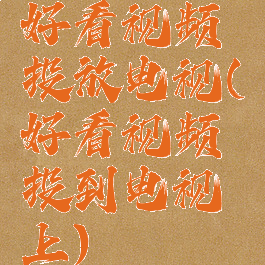 好看视频
投放电视(
好看视频
投到电视
上)